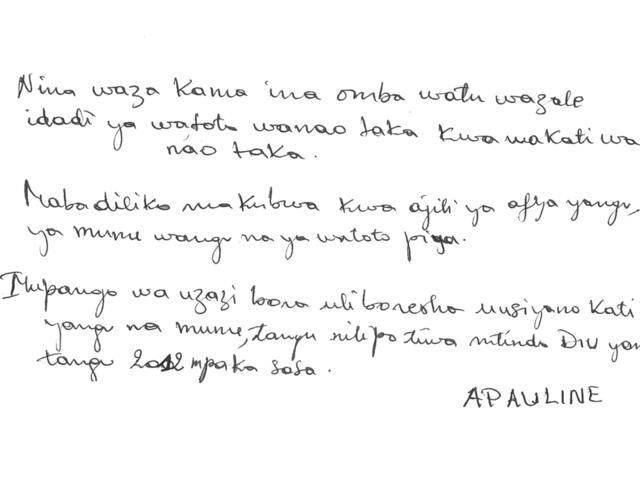 Nina waza kama ina omba watu wazale
idadi ya watoto wanao taka kwa wakati wa
nao taka.
Mabadiliko makubwa kwa ajili ya afya yangu,
ya mume wangu na ya watoto piya.
Mupango wa uzazi bora uliboresha uusiyano kati
yangu na mume, tangu nilipo tiwa mtindo DIU yan
tangu 2012 mpaka sasa.
APAULINE